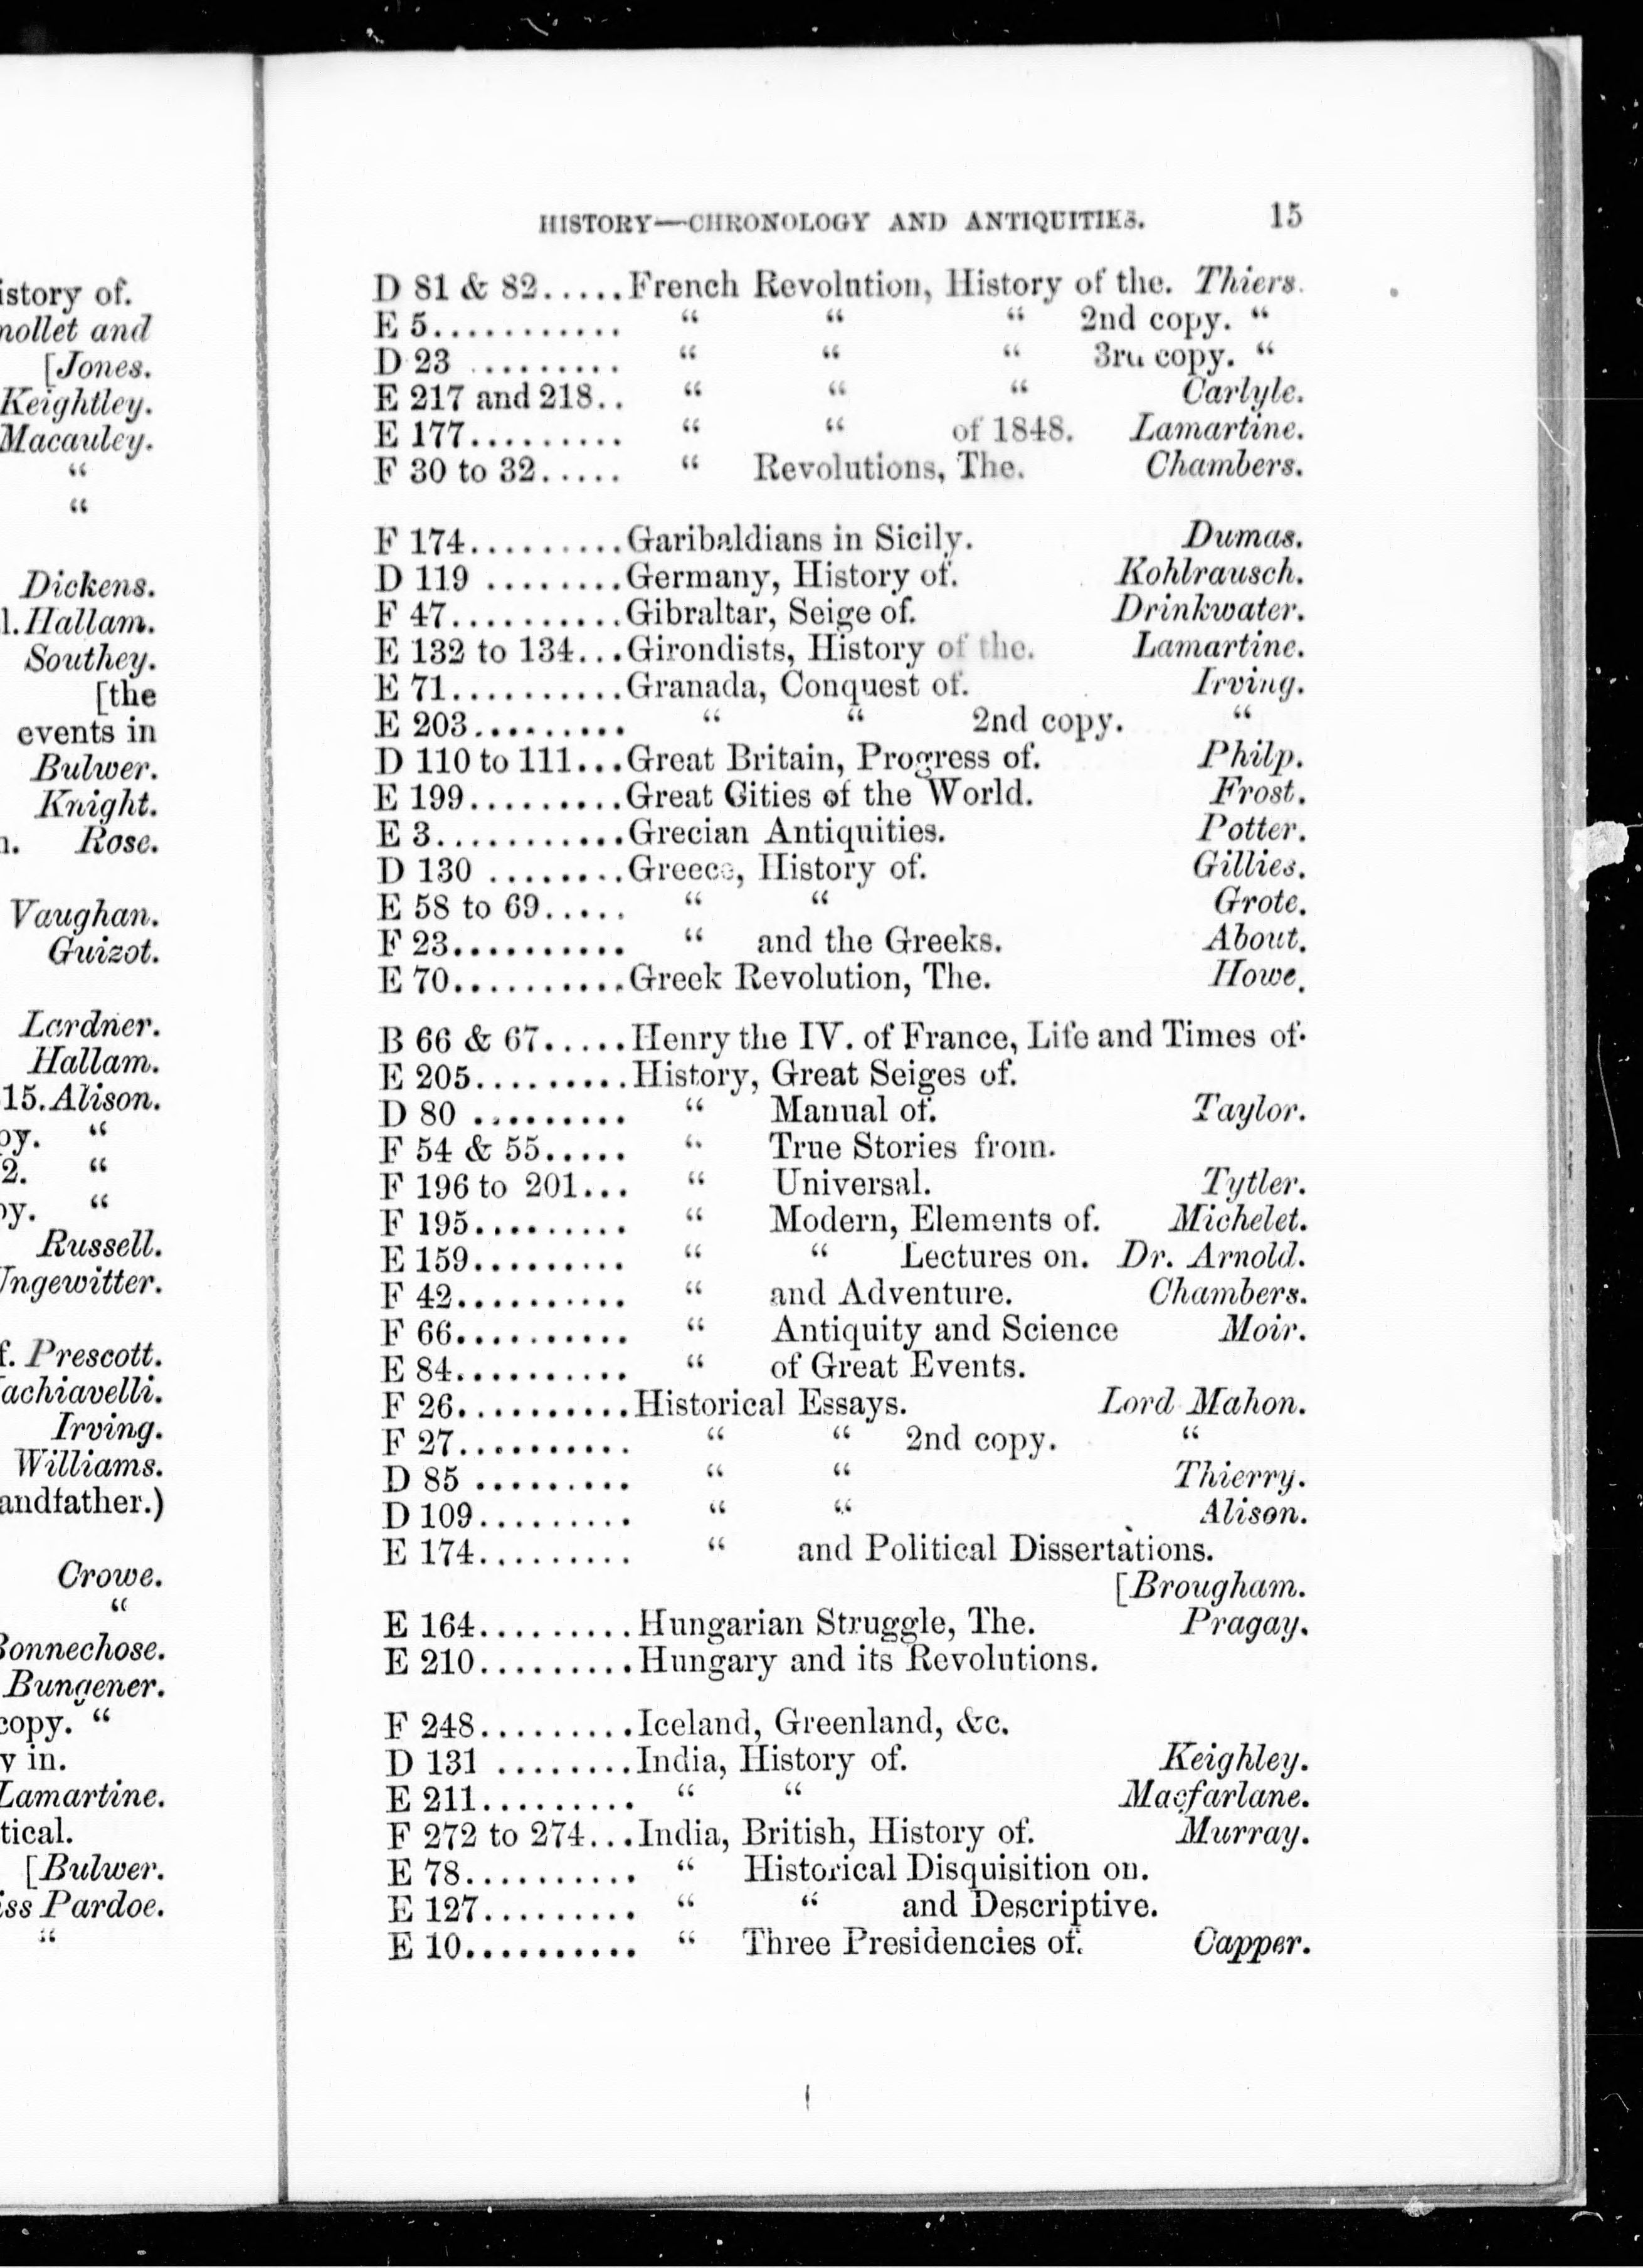 istory of.
nollet and
[Jones.
Keightley.
Macauley.
“
“
Dickens.
l. Hallam.
Southey.
[the
events in
Bulwer.
Knight.
Rose.
Vaughan.
Guizot.
Lardner.
Hallam.
15. Alison.
py. “
2. “
py. “
Russell.
Ungewitter.
f. Prescott.
achiavelli.
Irving.
Williams.
andfather.)
Crowe.
“
Bonnechose.
Bungener.
copy. “
y in.
Lamartine.
tical.
[Bulwer.
iss Pardoe.
“
HISTORY—CHRONOLOGY AND ANTIQUITIES. 15
D 81 & 82.....French Revolution, History of the. Thiers.
E 5........... “ “ “ 2nd copy. “
D 23 ......... “ “ “ 3rd copy. “
E 217 and 218.. “ “ “ Carlyle.
E 177......... “ “ of 1848. Lamartine.
F 30 to 32..... “ Revolutions, The. Chambers.
F 174.........Garibaldians in Sicily. Dumas.
D 119 ........Germany, History of. Kohlrausch.
F 47..........Gibraltar, Seige of. Drinkwater.
E 132 to 134...Girondists, History of the. Lamartine.
E 71..........Granada, Conquest of. Irving.
E 203......... “ “ 2nd copy. “
D 110 to 111...Great Britain, Progress of. Philp.
E 199.........Great Cities of the World. Frost.
E 3...........Grecian Antiquities. Potter.
D 130 ........Greece, History of. Gillies.
E 58 to 69..... “ “ Grote.
F 23.......... “ and the Greeks. About.
E 70..........Greek Revolution, The. Howe.
B 66 & 67.....Henry the IV. of France, Life and Times of.
E 205.........History, Great Seiges of.
D 80 ......... “ Manual of. Taylor.
F 54 & 55..... “ True Stories from.
F 196 to 201... “ Universal. Tytler.
F 195......... “ Modern, Elements of. Michelet.
E 159......... “ “ Lectures on. Dr. Arnold.
F 42.......... “ and Adventure. Chambers.
F 66.......... “ Antiquity and Science Moir.
E 84.......... “ of Great Events.
F 26..........Historical Essays. Lord Mahon.
F 27.......... “ “ 2nd copy. “
D 85 ......... “ “ Thierry.
D 109......... “ “ Alison.
E 174......... “ and Political Dissertations.
[Brougham.
E 164.........Hungarian Struggle, The. Pragay.
E 210.........Hungary and its Revolutions.
F 248.........Iceland, Greenland, &c.
D 131 ........India, History of. Keighley.
E 211......... “ “ Macfarlane.
F 272 to 274...India, British, History of. Murray.
E 78.......... “ Historical Disquisition on.
E 127......... “ “ and Descriptive.
E 10.......... “ Three Presidencies of. Capper.